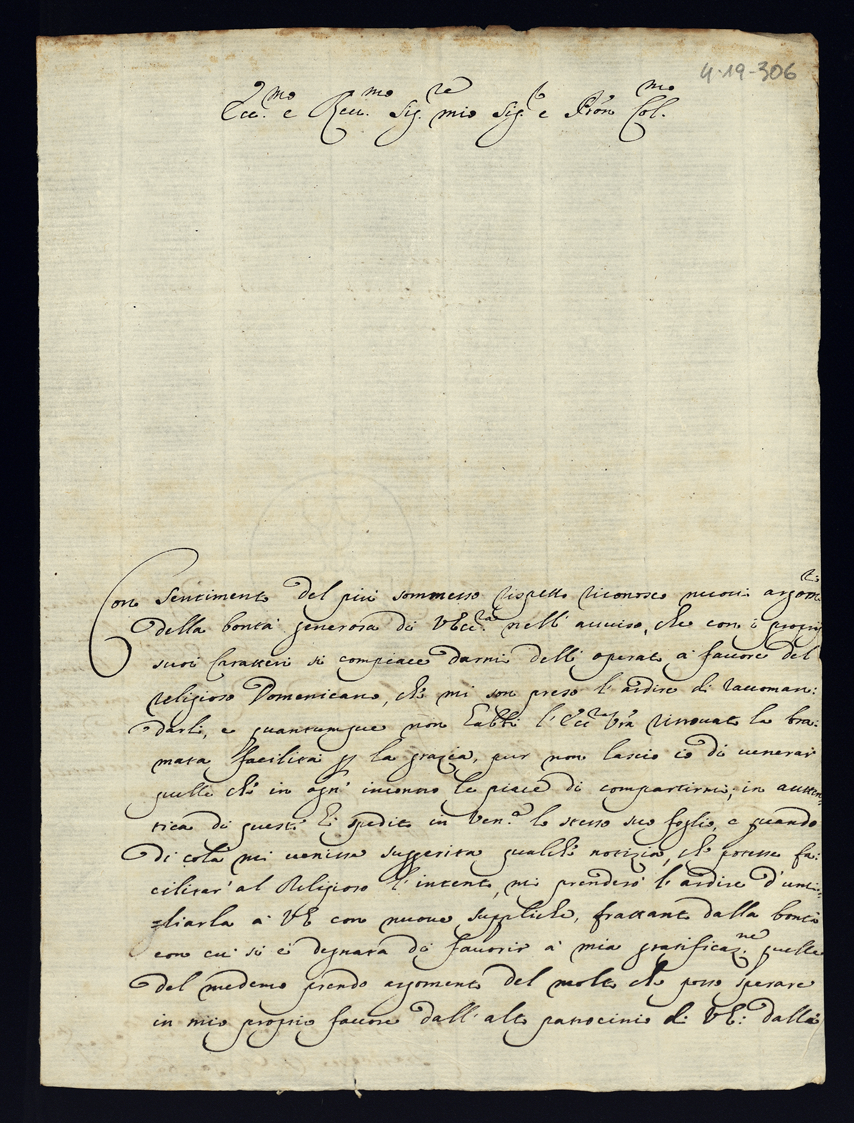 4-19-306
Ecc.mo e Rev.mo Sig.re mio Sig.r e Pron Col.mo
Con Sentimento del più sommesso rispetto riconosco nuovi argom.ti
della bontà generosa di VEcc.za nell'avviso, che con i proprij
suoi Caratteri si compiace darmi dell'operato à favore del
religioso Domenicano, che mi son preso l'ardire di raccoman:
darli, e quantunque non habbi l'Ecc.za Vrã ritrovato la bra:
mata facilità p la grazia, pur non lascio io di venerar
quelle che in ogn'incontro le piace di compartirmi, in autten:
tica di questi hò spedito in Ven.a lo stesso suo foglio, e quando
di colà mi venisse suggerita qualche notizia, che potesse fa:
cilitar'al Religioso l'intento, mi prenderò l'ardire d'umi:
gliarla à VE con nuove suppliche, frattanto dalla bontà
con cui si è degnata di favorir à mia gratificaz.ne quello
del medemo prendo argomento del molto che posso sperare
in mio proprio favore dall'alto patrocinio di VE: dalla